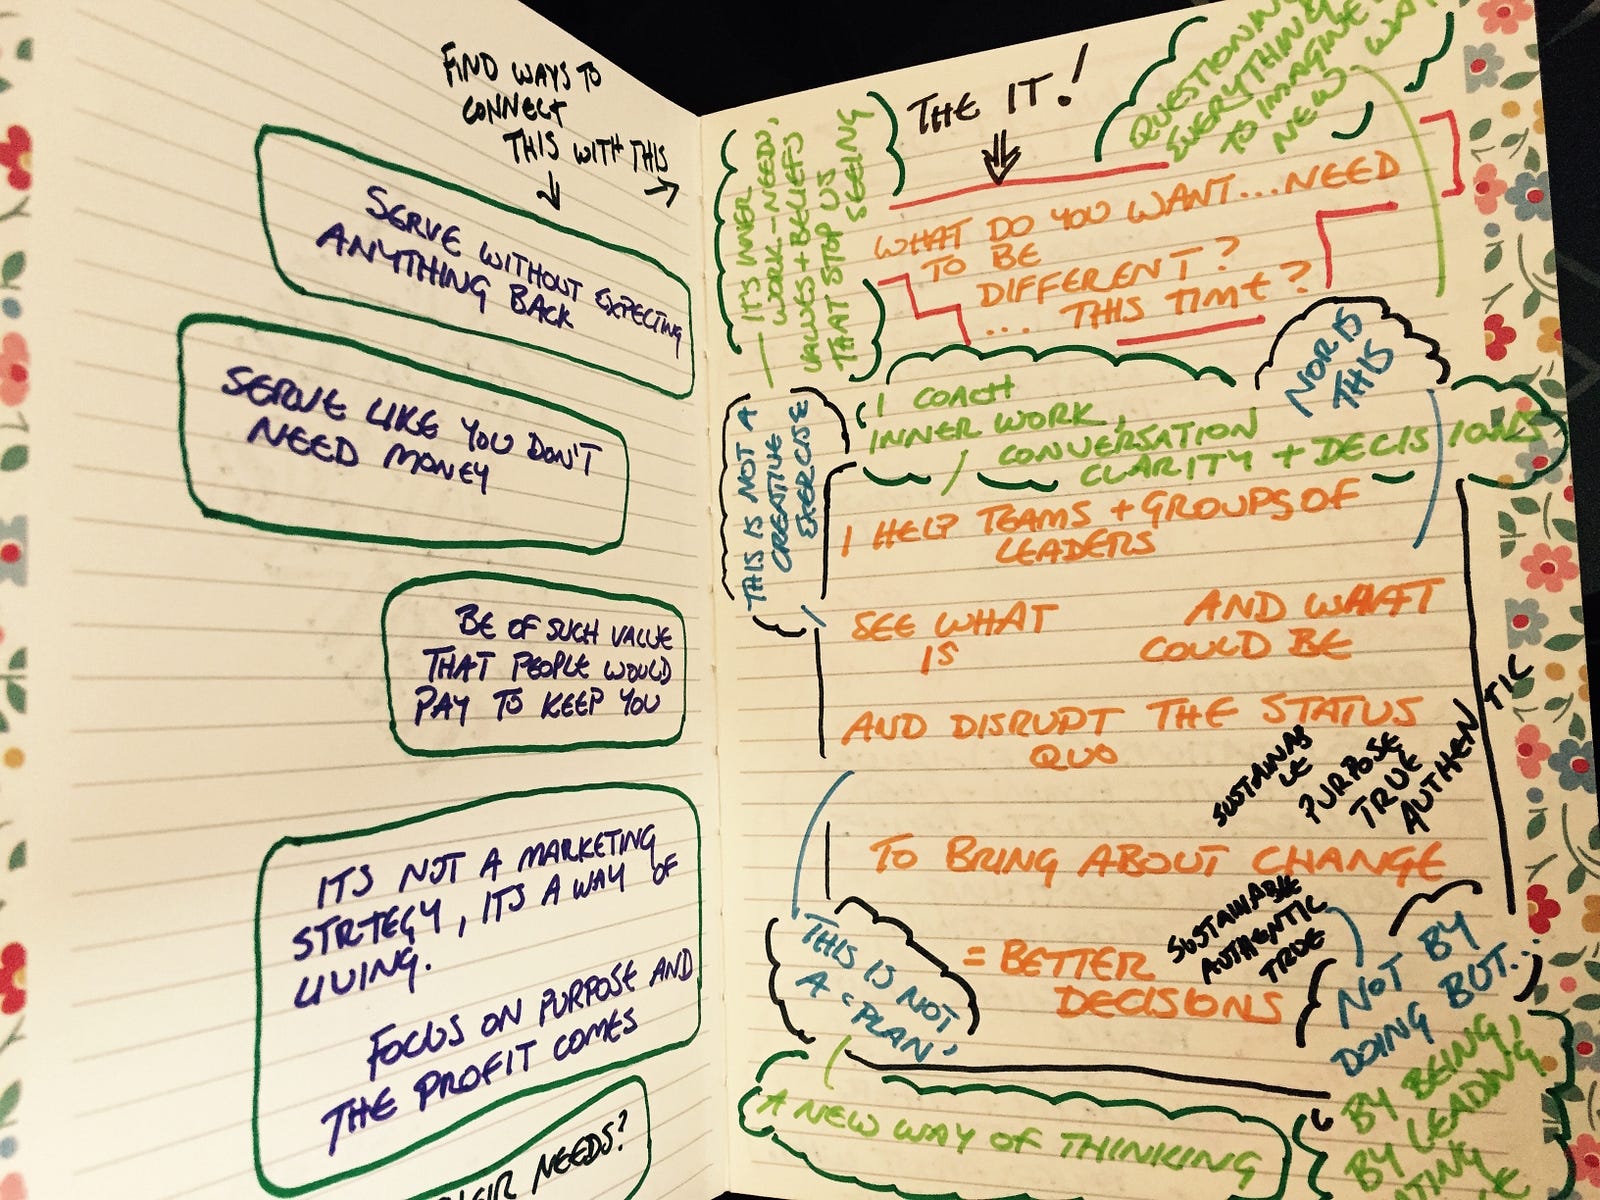 FIND WAYS TO
CONNECT
THIS WITH THIS
SERVE WITHOUT EXPECTING
ANYTHING BACK
SERVE LIKE YOU DON'T
NEED MONEY
BE OF SUCH VALUE
THAT PEOPLE WOULD
PAY TO KEEP YOU
ITS NOT A MARKETING
STRTEGY, ITS A WAY OF
LIVING.
FOCUS ON PURPOSE AND
THE PROFIT COMES
NEEDS?
THE IT!
QUESTIONING
EVERYTHING
TO IMAGINE
NEW WAY
— IT'S INNER
WORK - NEEDS,
VALUES + BELIEFS
THAT STOP US
SEEING
WHAT DO YOU WANT... NEED
TO BE
DIFFERENT?
... THIS TIME?
NOR IS
THIS
THIS IS NOT A
CREATIVE
EXERCISE
I COACH
INNER WORK,
/ CONVERSATION
CLARITY + DECISIONS
I HELP TEAMS + GROUPS OF
LEADERS
SEE WHAT
IS
AND WHAT
COULD BE
AND DISRUPT THE STATUS
QUO
SUSTAINAB
LE
PURPOSE
TRUE
AUTHENTIC
TO BRING ABOUT CHANGE
SUSTAINABLE
AUTHENTIC
TRUE
= BETTER
DECISIONS
THIS IS NOT
A 'PLAN'
NOT BY
DOING BUT..
BY BEING,
BY LEADING,
A NEW WAY OF THINKING